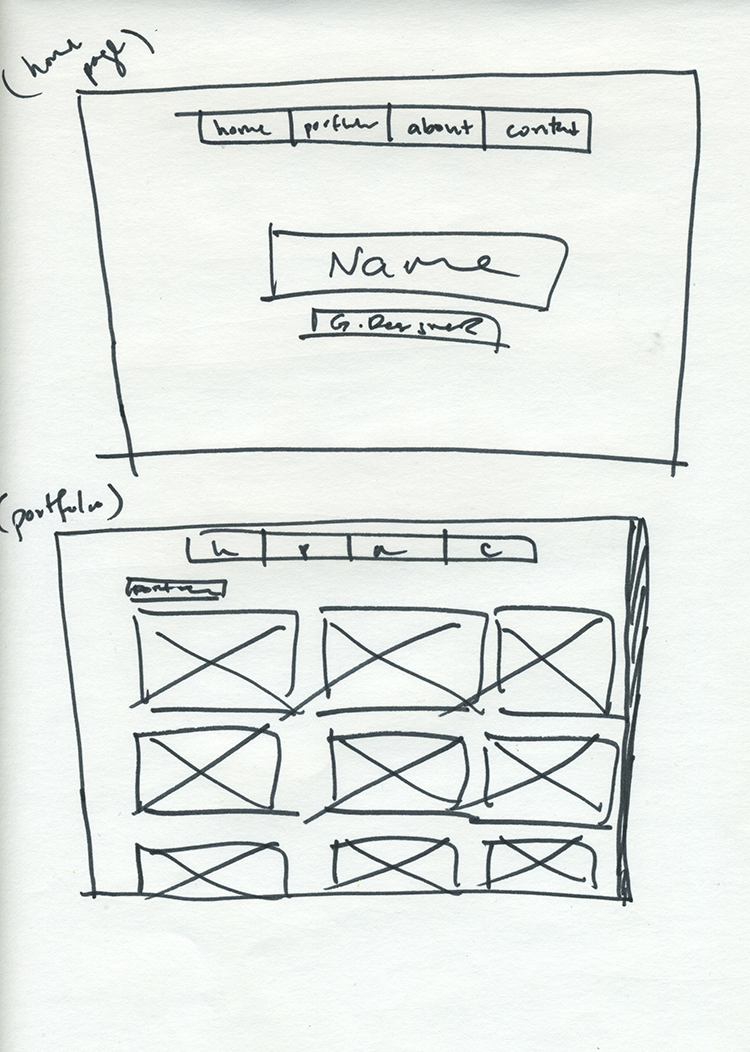 (home
page)
home portfolio about contact
Name
G. Designer
(portfolio)
h p a c